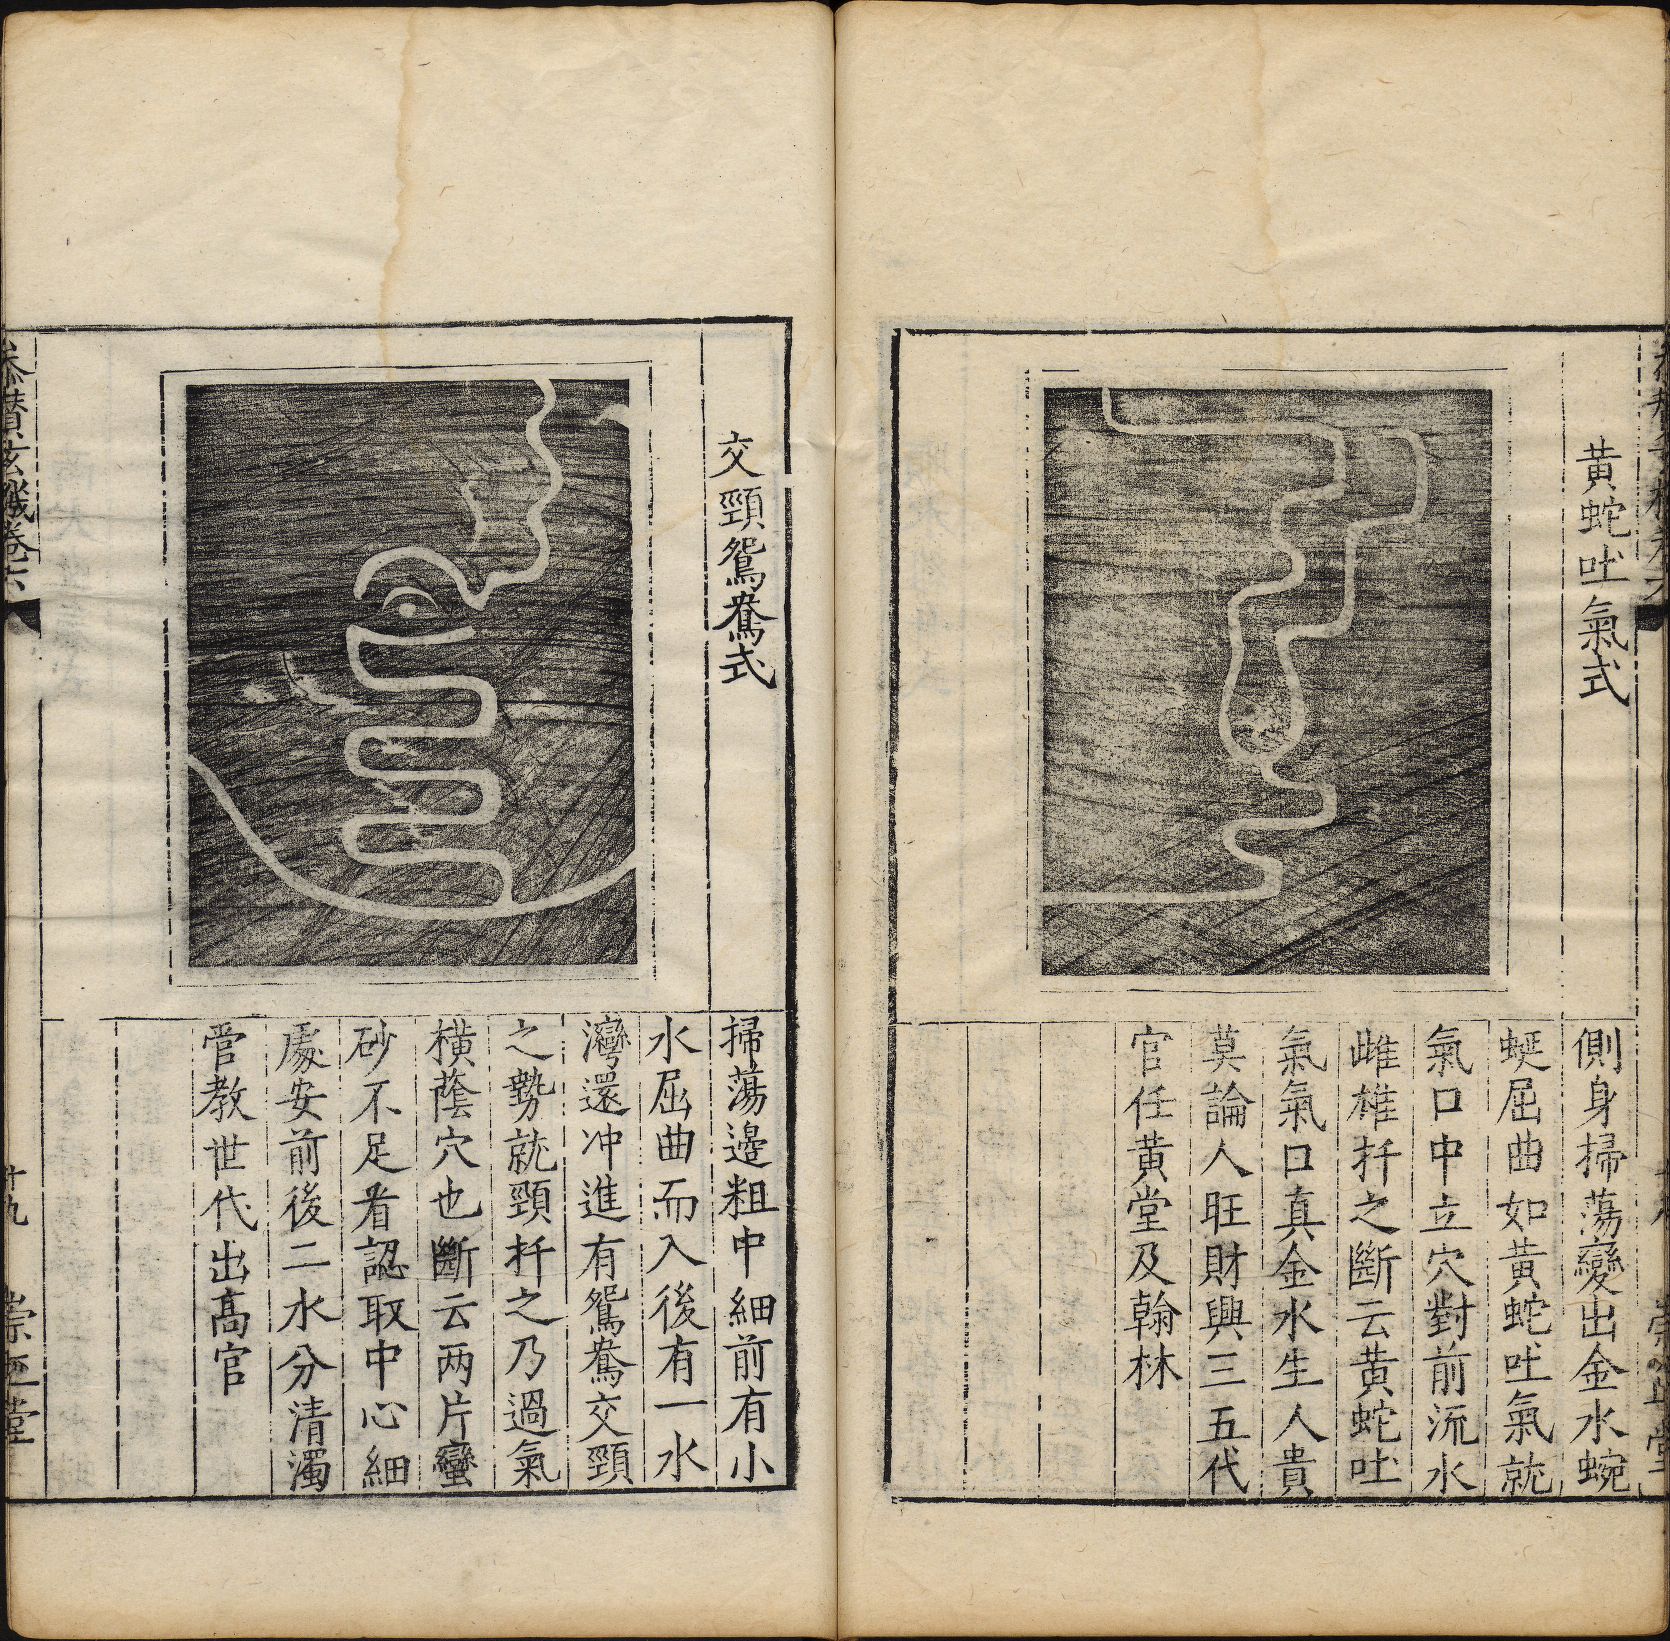 黄蛇吐氣式
側身掃蕩變出金水蜿
蜒屈曲如黄蛇吐氣就
氣口中立穴對前流水
雌雄扦之斷云黄蛇吐
氣氣口真金水生人貴
莫論人旺財興三五代
官任黄堂及翰林
交頸鴛鴦式
掃蕩邊粗中細前有小
水屈曲而入後有一水
灣還冲進有鴛鴦交頸
之勢就頸扦之乃過氣
横蔭穴也斷云两片蠻
砂不足看認取中心細
處安前後二水分清濁
管教世代出髙官
玄機卷六
十九
崇正堂